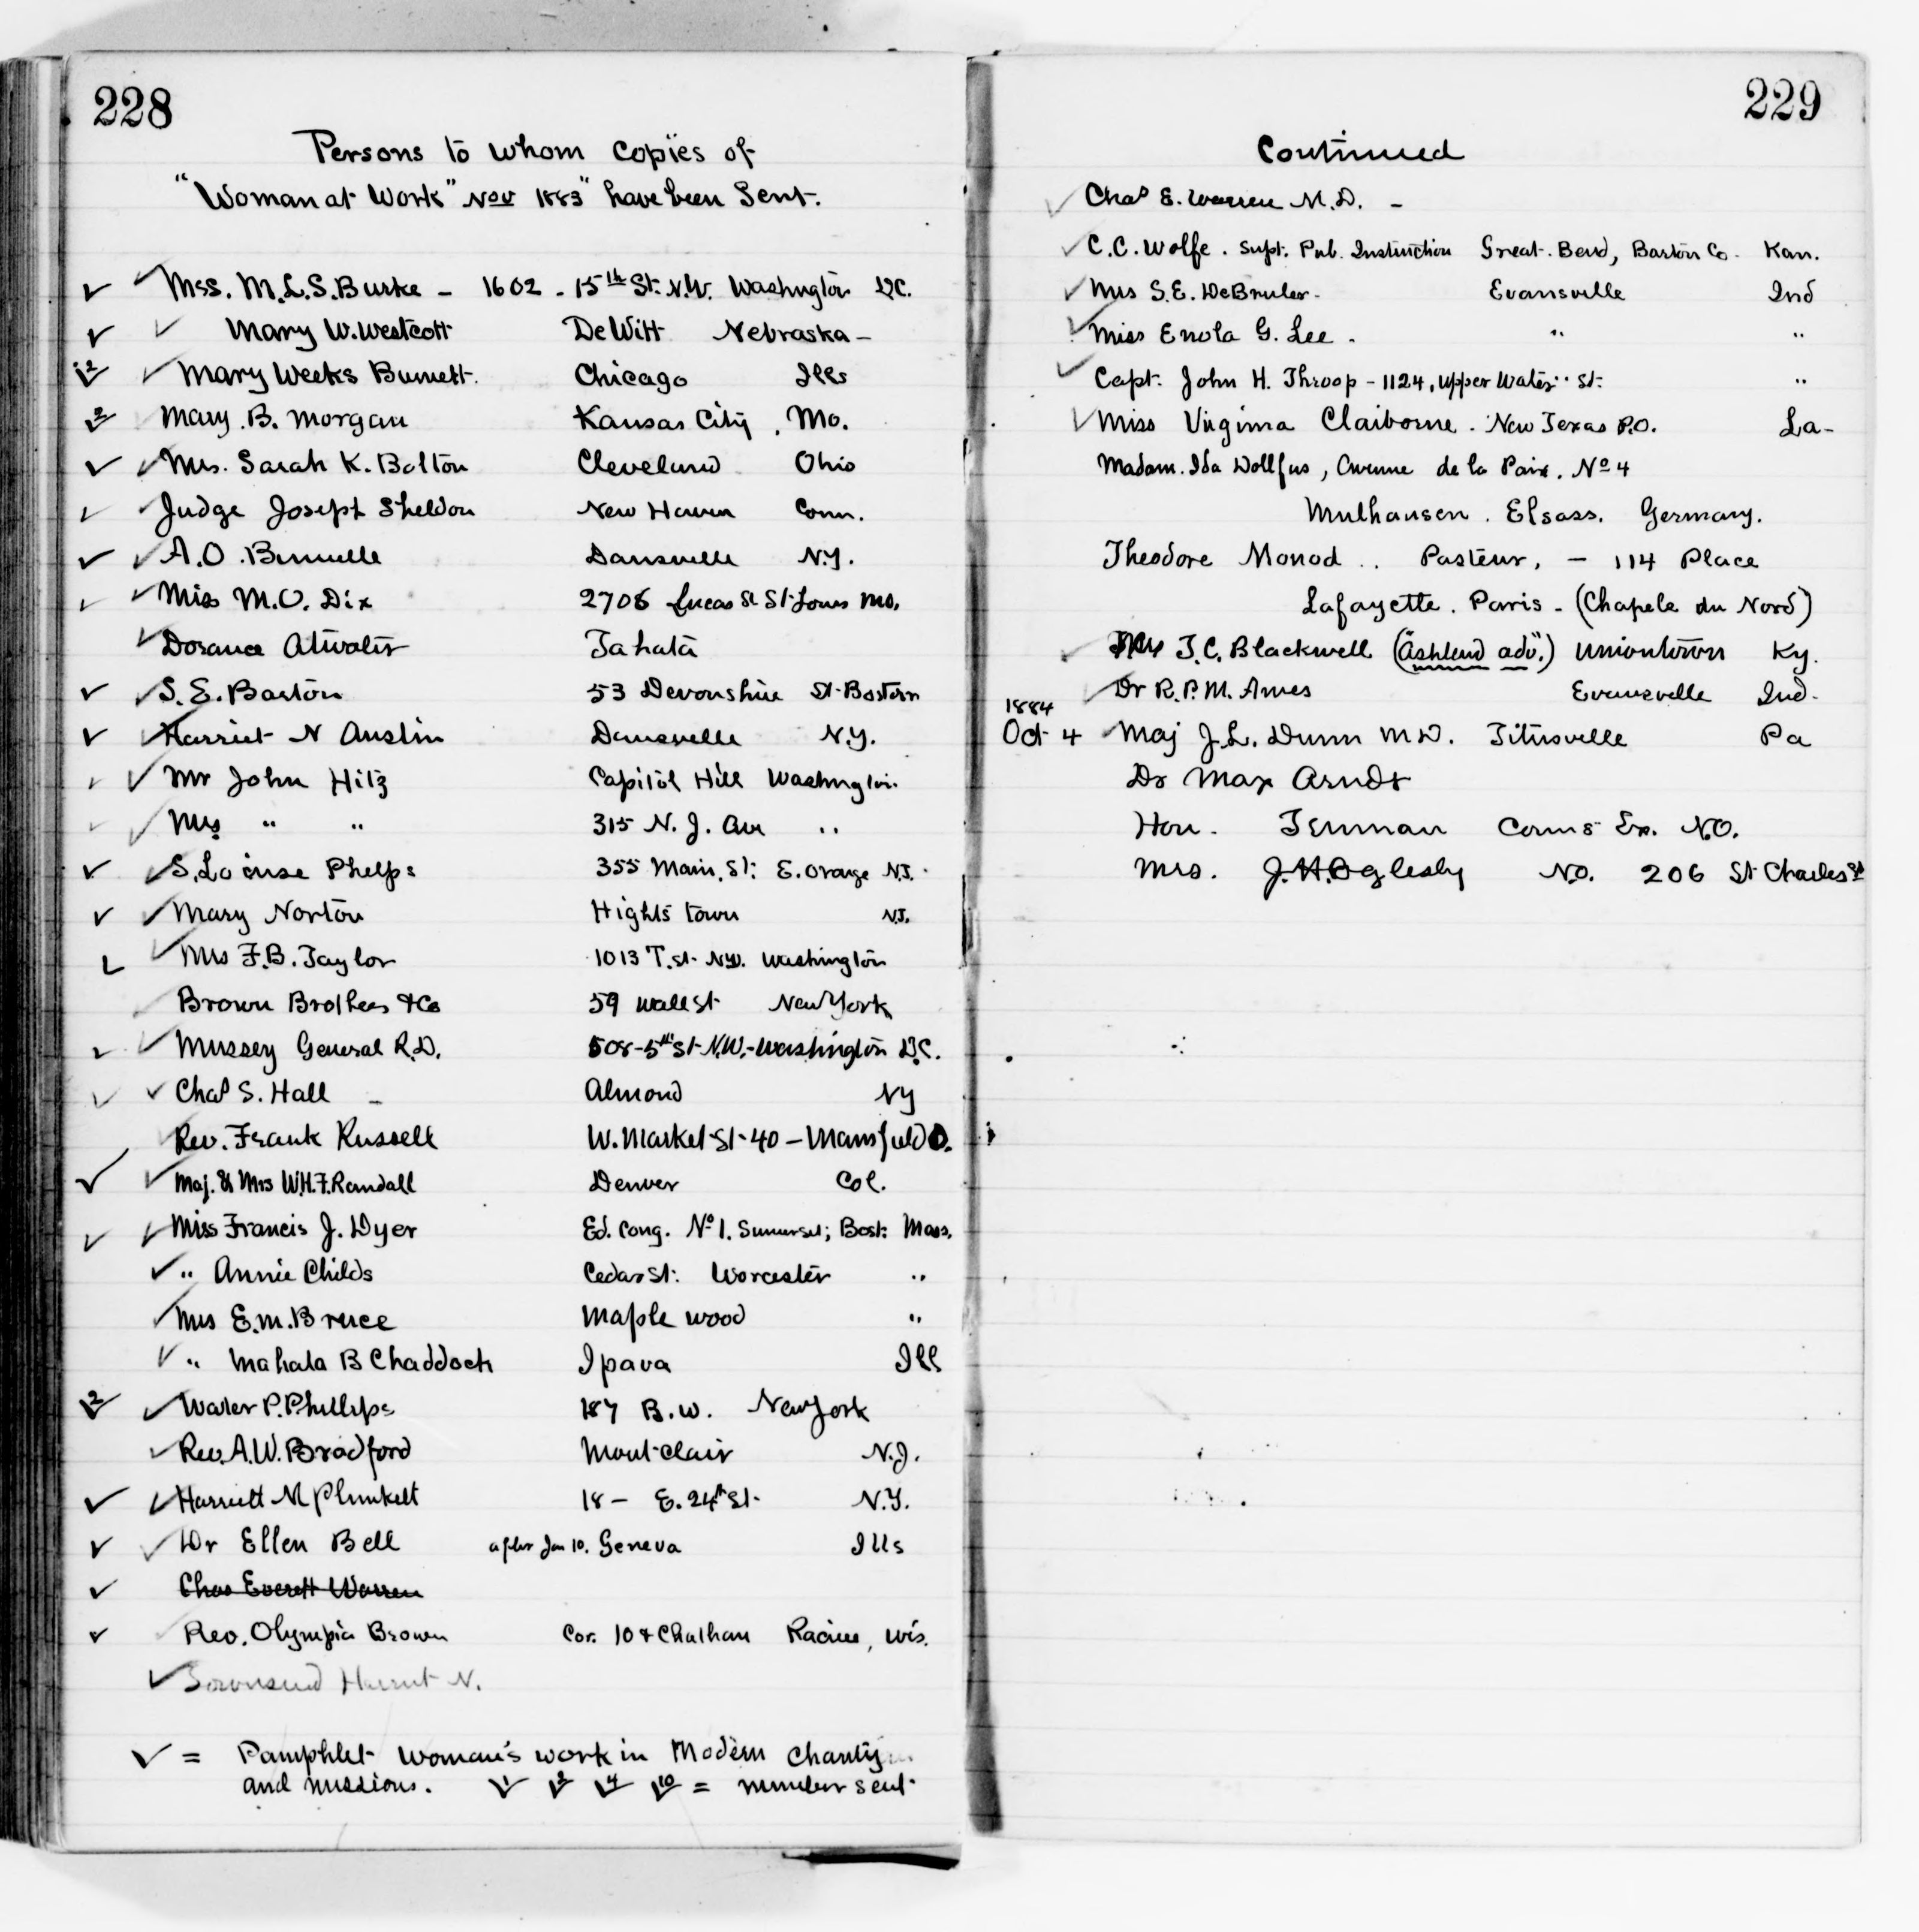 228
Persons to whom copies of
"Woman at Work" Nov 1883" have been Sent.
✓ ✓ Mss. M.L.S. Burke - 1602 - 15th St. N.W. Washington D.C.
✓ ✓ Mary W. Westcott DeWitt Nebraska -
2 ✓ ✓ Mary Weeks Burnett. Chicago Ills
2 ✓ Mary B. Morgan Kansas City, Mo.
✓ ✓ Mrs. Sarah K. Bolton Cleveland Ohio
✓ ✓ Judge Joseph Sheldon New Haven Conn.
✓ ✓ A.O. Bunnelle Dansville N.Y.
✓ ✓ Miss M.O. Dix 2706 Lucas St St. Louis Mo.
✓ Dorance Atwater Tahata
✓ ✓ S.E. Barton 53 Devonshire St. Boston
✓ ✓ Harriet N Austin Dansville N.Y.
✓ ✓ Mr John Hitz Capitol Hill Washington.
✓ ✓ Mrs " " 315 N. J. Av "
✓ ✓ S. Louise Phelps 355 Main. St: E. Orange N.J.
✓ ✓ Mary Norton Hights town N.J.
✓ ✓ Mrs F.B. Taylor 1013 T. St. N.W. Washington
✓ Brown Brothers & Co 59 Wall St New York
✓ ✓ Mussey General R.D. 508-5th St N.W.-Washington D.C.
✓ ✓ Chas S. Hall - Almond NY
Rev. Frank Russell W. Market St. 40 - Mansfield O.
✓ ✓ Maj. & Mrs W.H.F. Randall Denver Col.
✓ ✓ Miss Francis J. Dyer Ed. Cong. No 1. Somerset; Bost: Mass.
✓ " Annie Childs Cedar St: Worcester "
✓ Mrs E.M. Bruce Maple wood "
✓ " Mahala B Chaddock Ipava Ill
2 ✓ ✓ Walter P. Phillips 187 B.W. New York
✓ Rev. A.W. Bradford Mont-clair N.J.
✓ ✓ Harriett M Plunkett 18 - E. 24th St. N.Y.
✓ ✓ Dr Ellen Bell after Jan 10. Geneva Ills
✓ Chas Everett Warren
✓ Rev. Olympia Brown Cor. 10 & Chatham Racine, Wis.
✓ Townsend Harriet N.
✓ = Pamphlet Woman's work in Modern Charity
and missions. ✓1 ✓2 ✓4 ✓10 = number sent
229
Continued
✓ Chas E. Warren M.D. -
✓ C.C. Wolfe. Supt. Pub. Instruction Great Bend, Barton Co. Kan.
✓ Mrs S.E. DeBruler. Evansville Ind
✓ Miss Enola G. Lee. " "
✓ Capt. John H. Throop - 1124, Upper Water St: "
✓ Miss Virginia Claiborne. New Texas P.O. La-
Madam. Ida Dollfus, Avenue de la Paix. No 4
Mulhausen. Elsass. Germany.
Theodore Monod .. Pasteur, - 114 Place
Lafayette. Parris - (Chapele du Nord)
✓ Mrs T.C. Blackwell ("Ashland adv.") Uniontown Ky.
✓ Dr R.P.M. Ames Evansville Ind.
1884
Oct 4 ✓ Maj J.L. Dunn M.D. Titusville Pa
Dr Max Arndt
Hon. Tennman Coms Ex. N.O.
Mrs. J.H. Oglesby N.O. 206 St Charles St